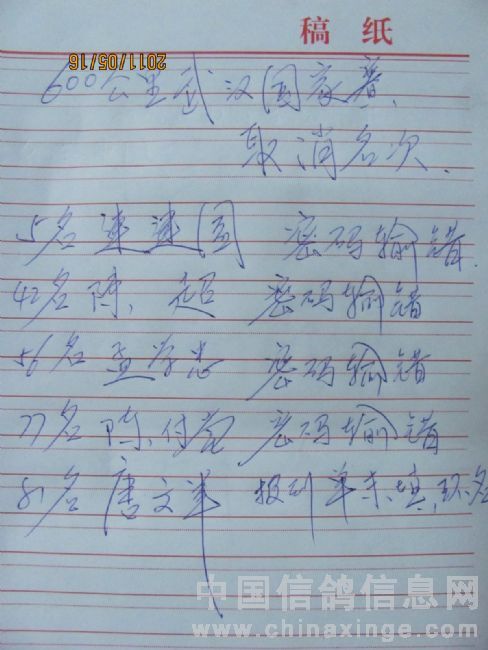 稿纸
2011/05/16
600公里武汉国家赛.
取消名次.
5名 连建国 密码输错.
42名 陈超 密码输错
56名 孟学忠 密码输错
77名 陈付 密码输错
81名 唐文华 报到单未填环名
中国信鸽信息网
www.chinaxinge.com